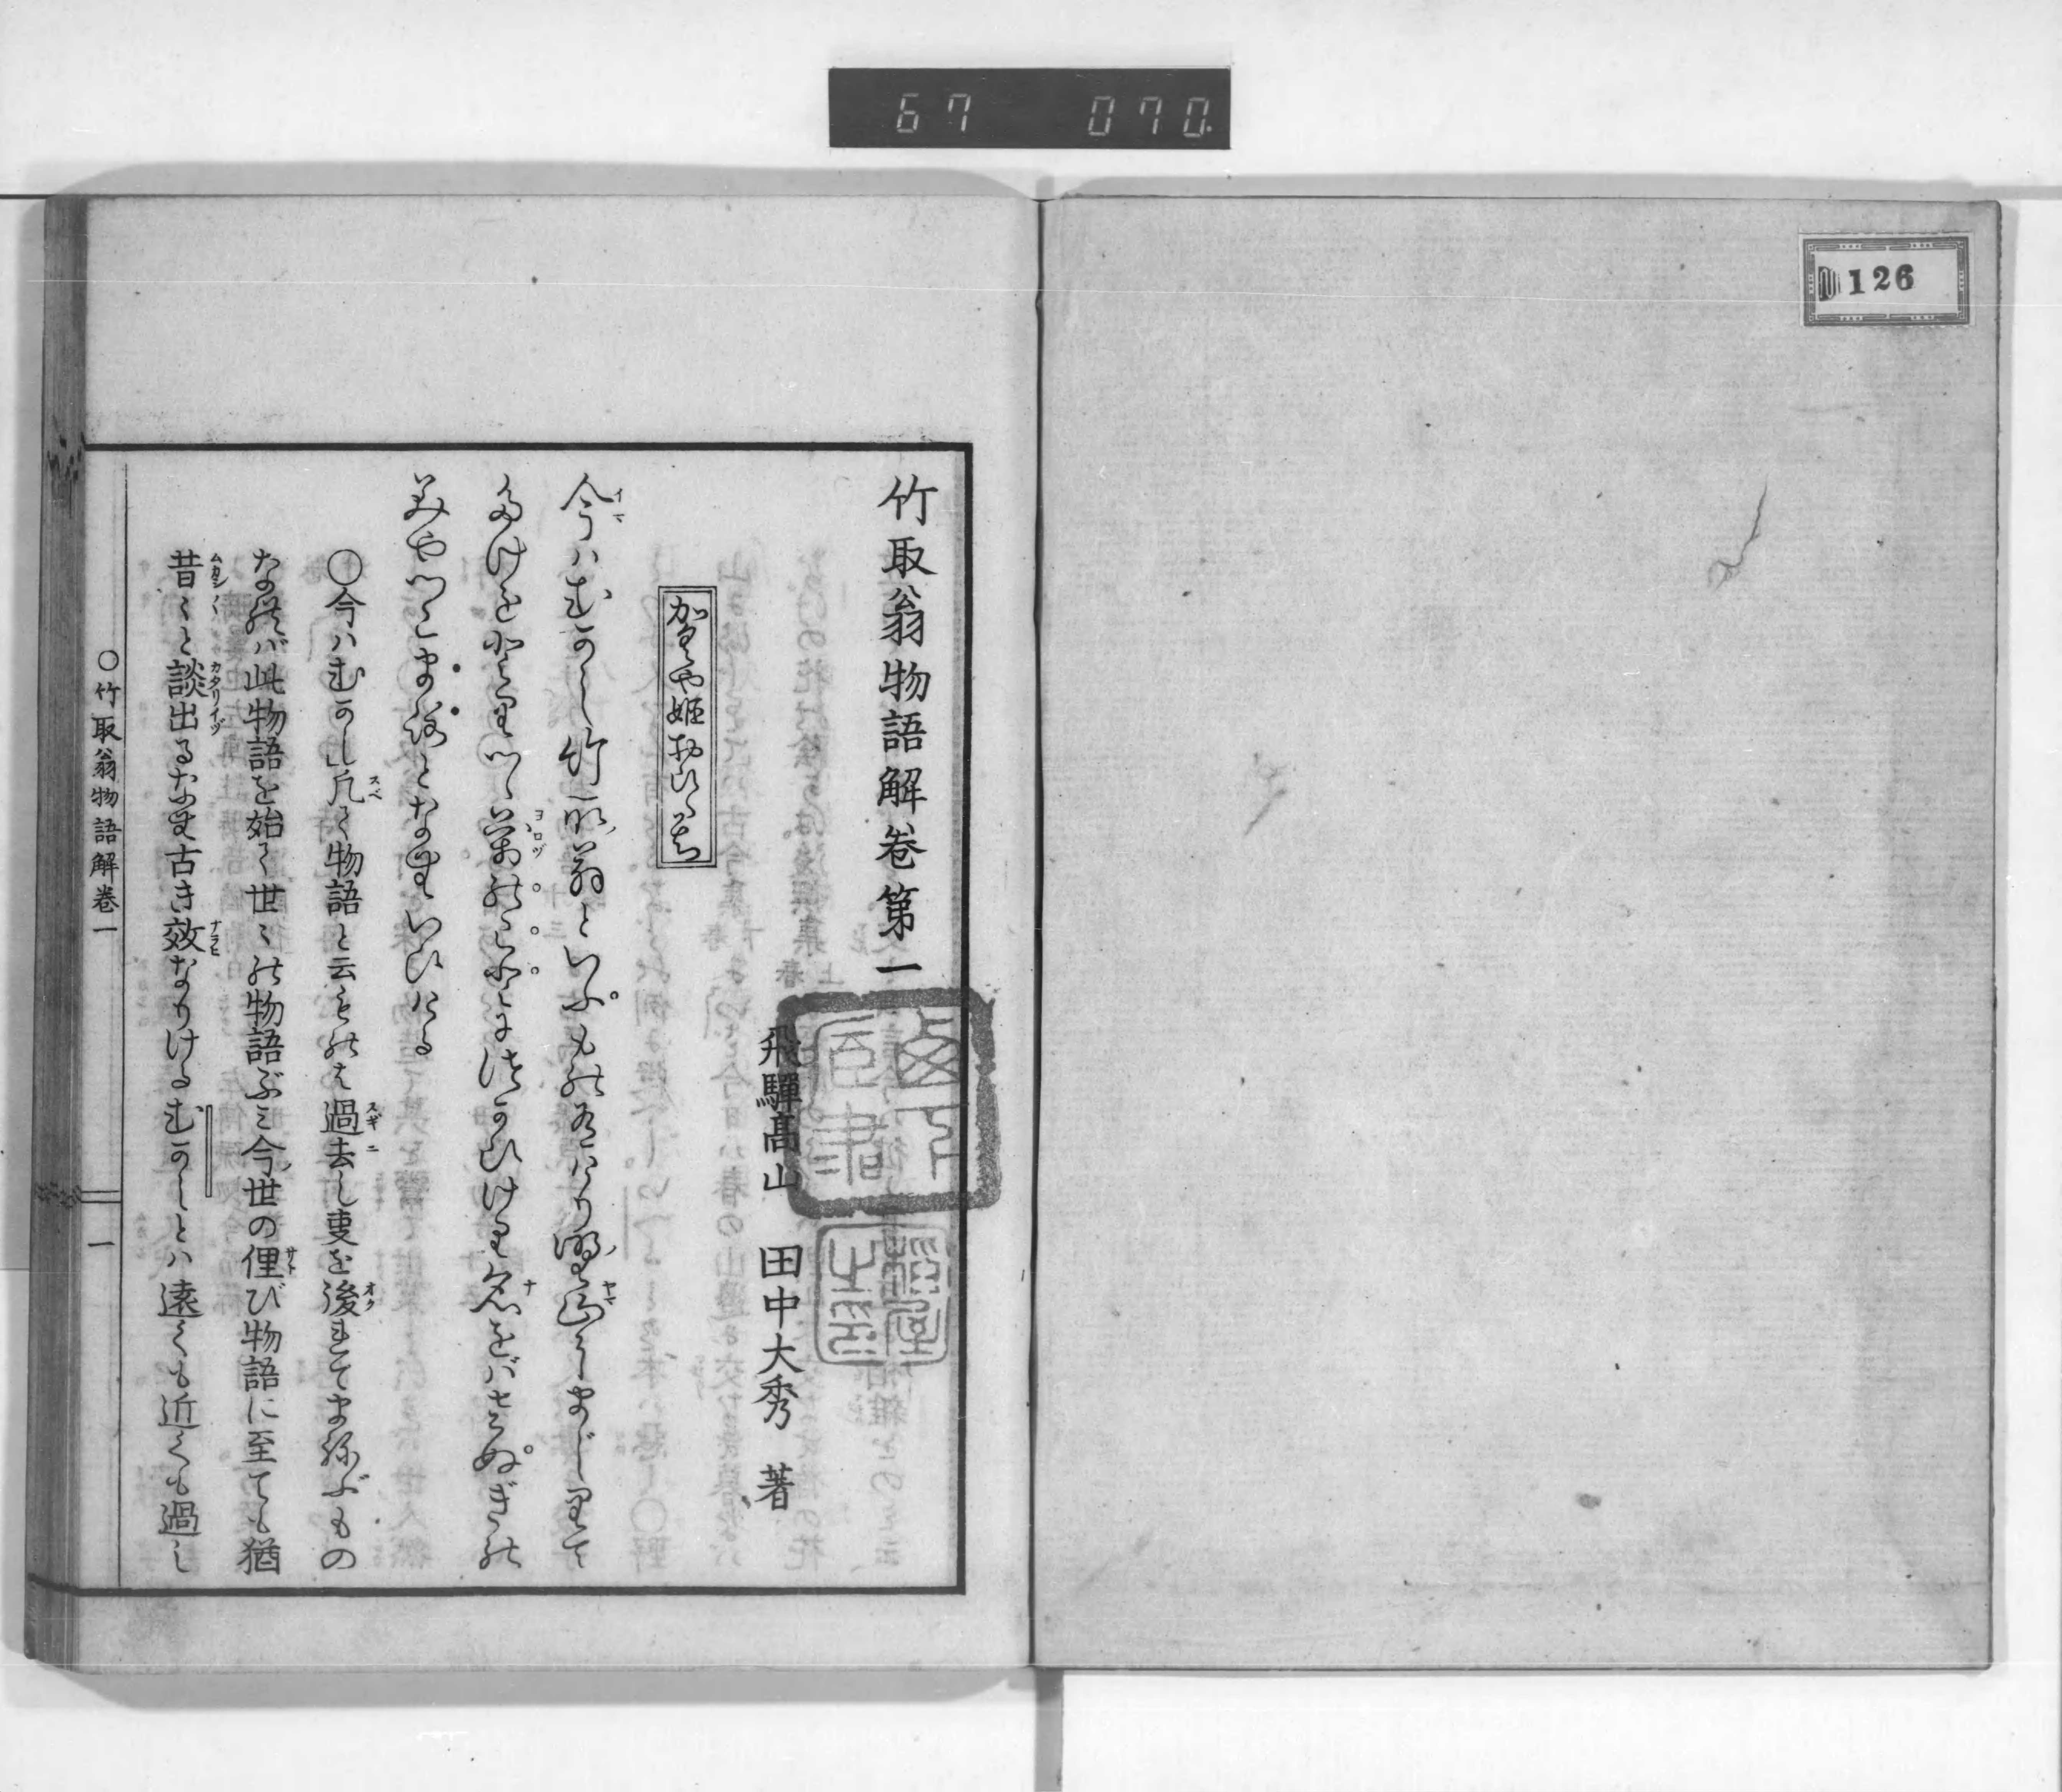 67 070.
126
竹取翁物語解卷第一
飛驒髙山 田中大秀 著
加ゝや姫おひゝち
今ハむかし竹取翁といふもの有けり野山にまじりて
たけをとりつゝ萬のことにつかひけり名をばさぬぎの
みやつこまろとなむいひける
○今ハむかし凡て物語と云ものは過去し事を後れてまねぶもの
なれバ此物語を始て世ゝの物語ぶミ今世の俚び物語に至ても猶
昔ゝと談出るなむ古き效なりけるむかしとハ遠くも近くも過し
○竹取翁物語解卷一
一